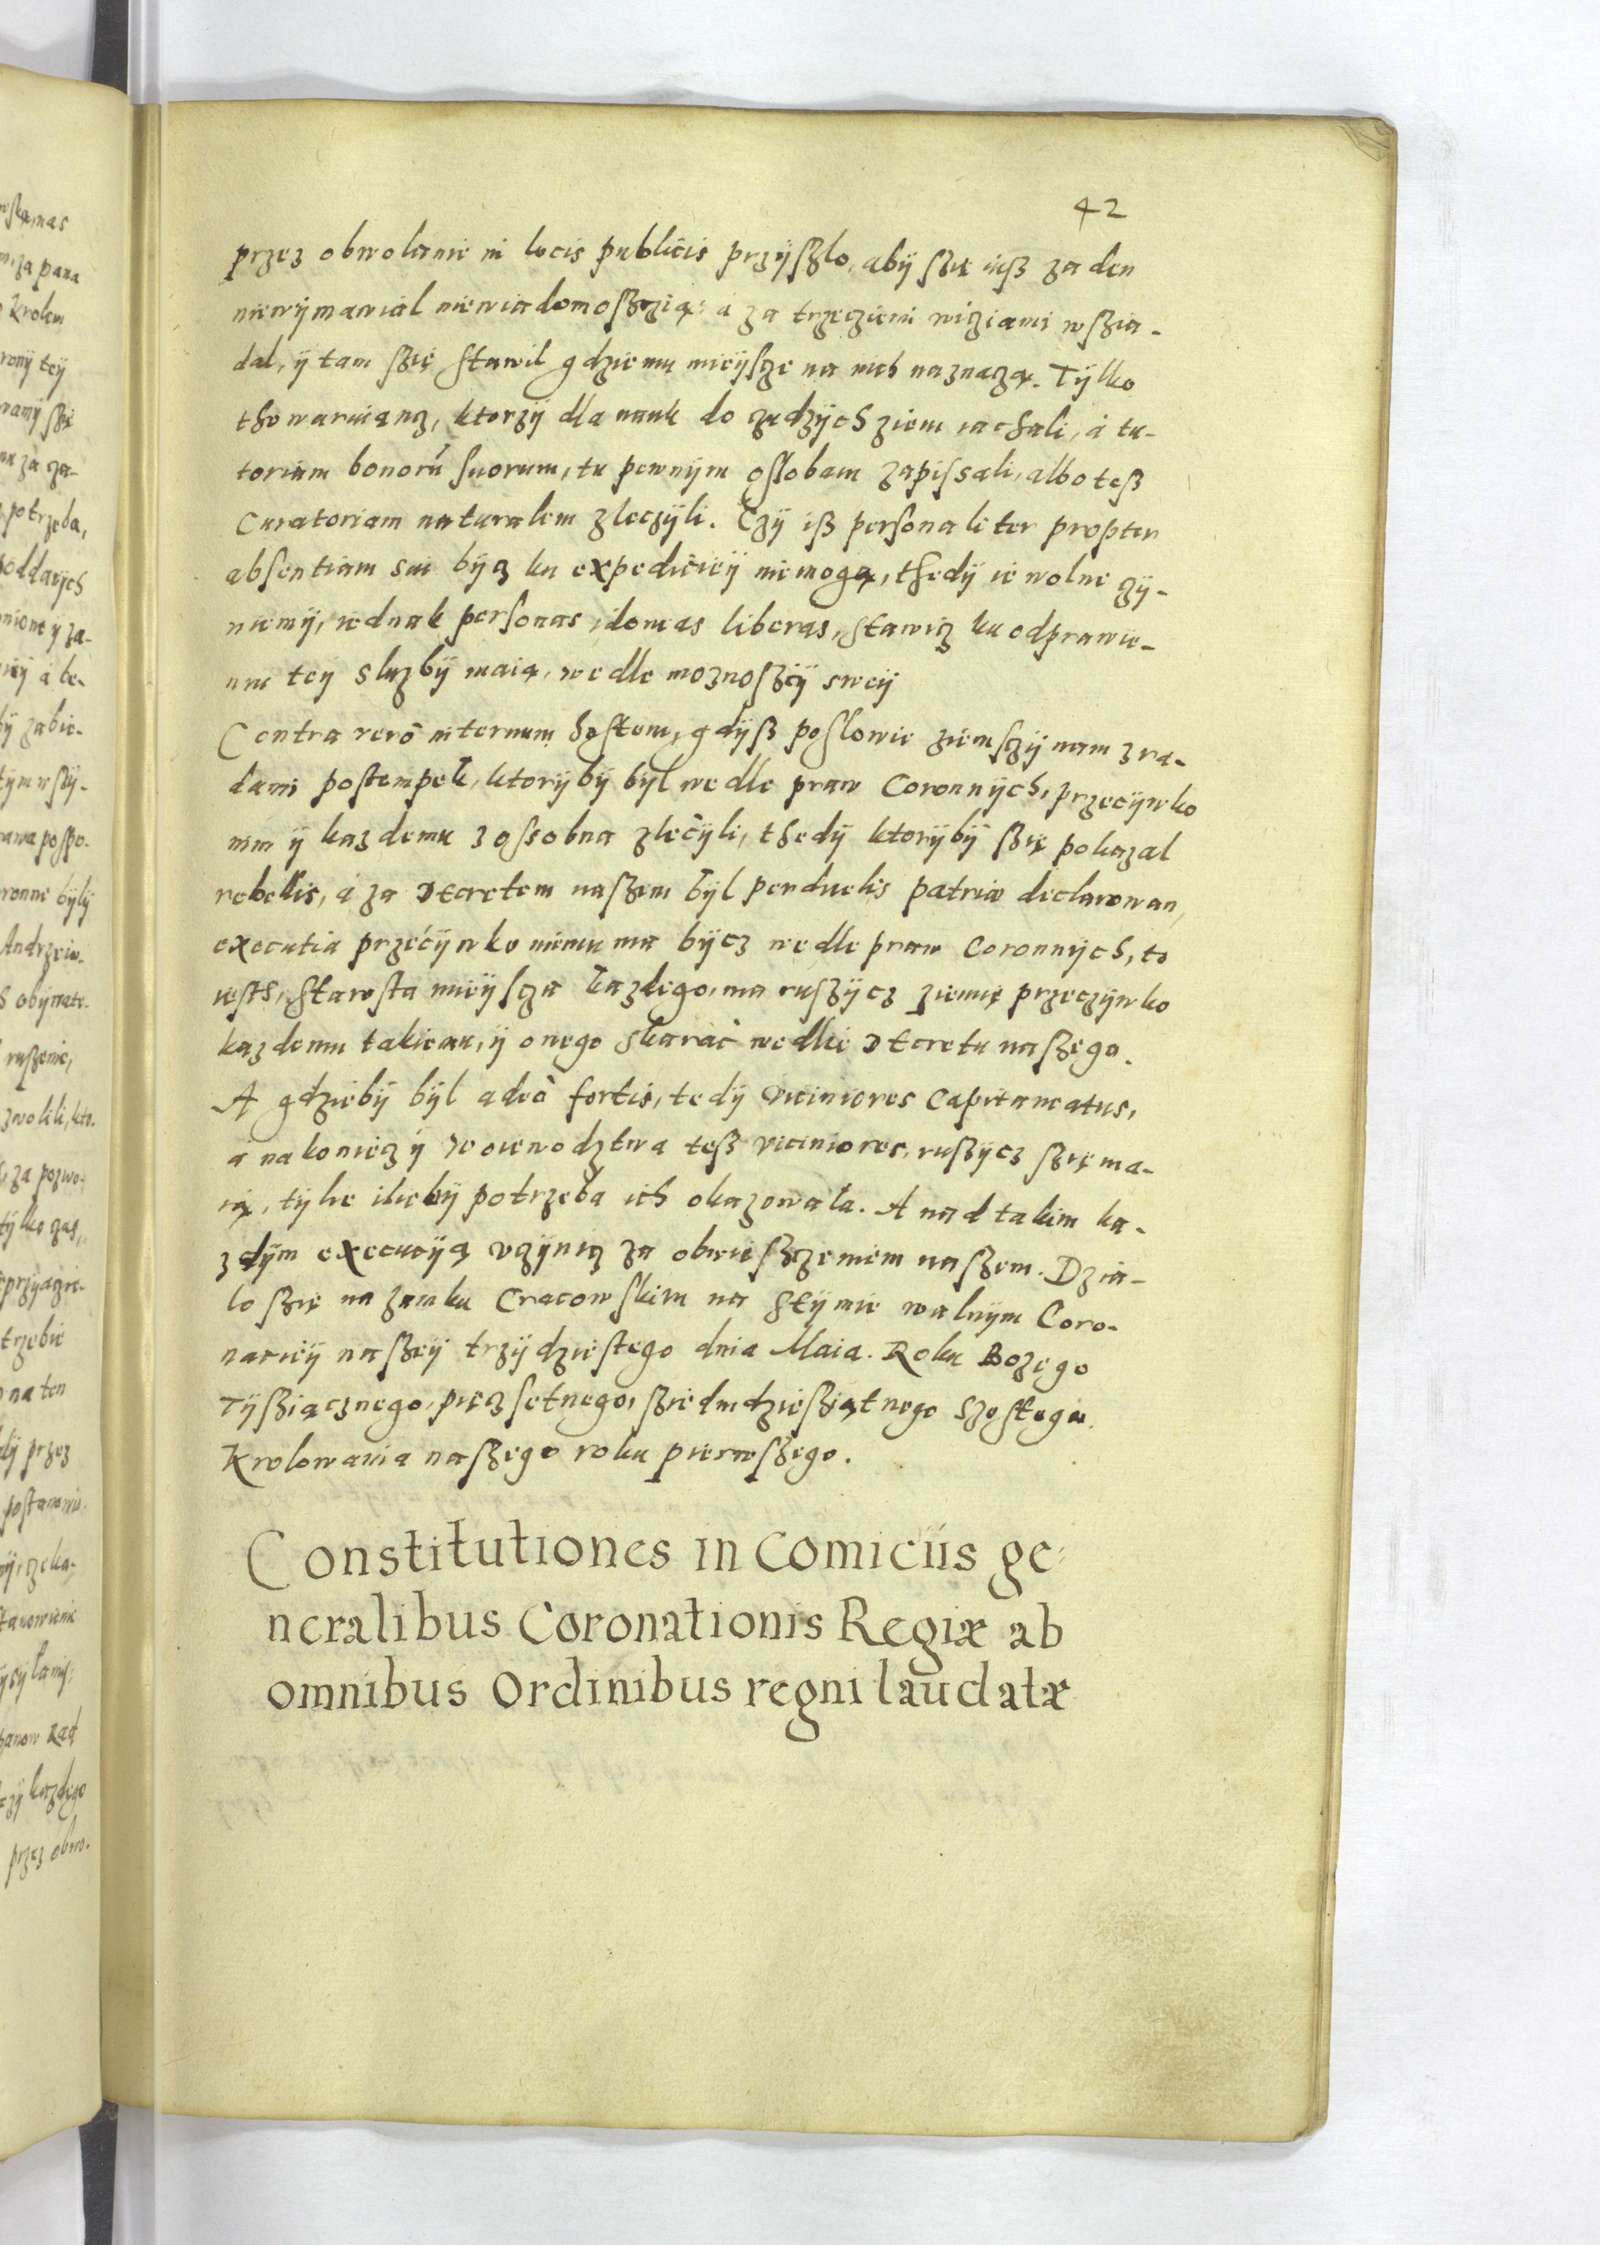 42
przez obwolanie in locis publicis przÿszlo, abÿ szię iusz zaden
niewÿmawial niewiadomoszczią: a za trzeciemi wiciami wszia-
dal, ÿ tam szię stawil gdziemu mieÿsze na nich naznaczą. Tÿlko
thowaruiącz, ktorzÿ dla nauk do cudzÿch ziem iachali, á tu-
toriam bonorū suorum, tu pewnÿm ossobam zapissali, albo tesz
Curatoriam naturalem zleczÿli. Czÿ isz personaliter propter
absentiam sui bÿcz ku expedicieÿ niemogą, thedÿ ie wolne czÿ-
niemÿ, iednak personas idoneas liberas, stawicz ku odprawie-
niu teÿ sluzbÿ maią, wedle moznosczÿ sweÿ
Contra verò internum hostem, gdÿsz poslowie ziemsczÿ nam z ra-
dami postempek, ktorÿbÿ bÿl wedle praw Coronnÿch, przecÿwko
nim ÿ kazdemu z ossobna zlecÿli, thedÿ ktorÿbÿ szię pokazal
rebellis, á za Decretem naszem bÿl perduelis patriæ declarowan,
executia przecÿwko niemu ma bÿcz wedle praw Coronnÿch, to
iesth, starosta mieÿscza kazdego, ma ruszÿcz ziemię przeczÿwko
kazdemu takiemu, ÿ onego skarać wedlie Decretu naszego.
A gdziebÿ bÿl adeò fortis, tedÿ viciniores Capitaneatus,
a nakoniecz ÿ Woiewodztwa tesz viciniores, ruszÿcz szię ma-
ią, tÿlie iliebÿ potrzeba ich okazowała. A nad takim ka-
zdÿm execucÿą vczÿnią za obwieszczeniem naszem. Dzia-
lo szię na zamku Cracowskim na stÿmie walnÿm Coro-
nacieÿ naszeÿ trzÿdziestego dnia Maia. Roku Bozego
Tÿsziącznego, pięczsetnego, sziedmdziesziątnego szostego.
Krolowania naszego roku pierwszego.
Constitutiones in Comiciis ge-
neralibus Coronationis Regiæ ab
omnibus Ordinibus regni laudatæ